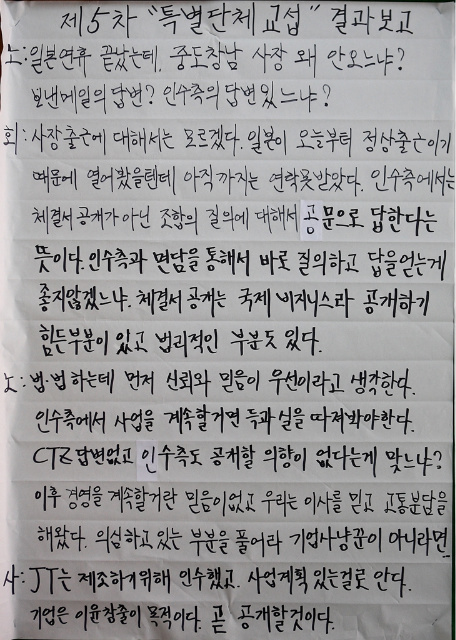 제5차 "특별단체교섭" 결과보고
노:일본연휴 끝났는데, 중도창남 사장 왜 안오느냐?
보낸메일의 답변? 인수측의 답변있느냐?
회:사장출근에 대해서는 모르겠다. 일본이 오늘부터 정상출근이기
때문에 열어봤을텐데 아직까지는 연락못받았다. 인수측에서는
체결서공개가 아닌 조합의 질의에 대해서 공문으로 답한다는
뜻이다. 인수측과 면담을 통해서 바로 질의하고 답을얻는게
좋지않겠느냐. 체결서 공개는 국제 비지니스라 공개하기
힘든부분이 있고 법리적인 부분도 있다.
노:법·법 하는데 먼저 신뢰와 믿음이 우선이라고 생각한다.
인수측에서 사업을 계속할거면 득과 실을 따져봐야한다.
CTZ 답변없고 인수측도 공개할 의향이 없다는게 맞느냐?
이후 경영을 계속할거란 믿음이없고 우리는 이사를 믿고 고통분담을
해왔다. 의심하고 있는 부분을 풀어라 기업사냥꾼이 아니라면
사:JT는 제조하기위해 인수했고. 사업계획 있는걸로 안다.
기업은 이윤창출이 목적이다. 곧 공개할것이다.